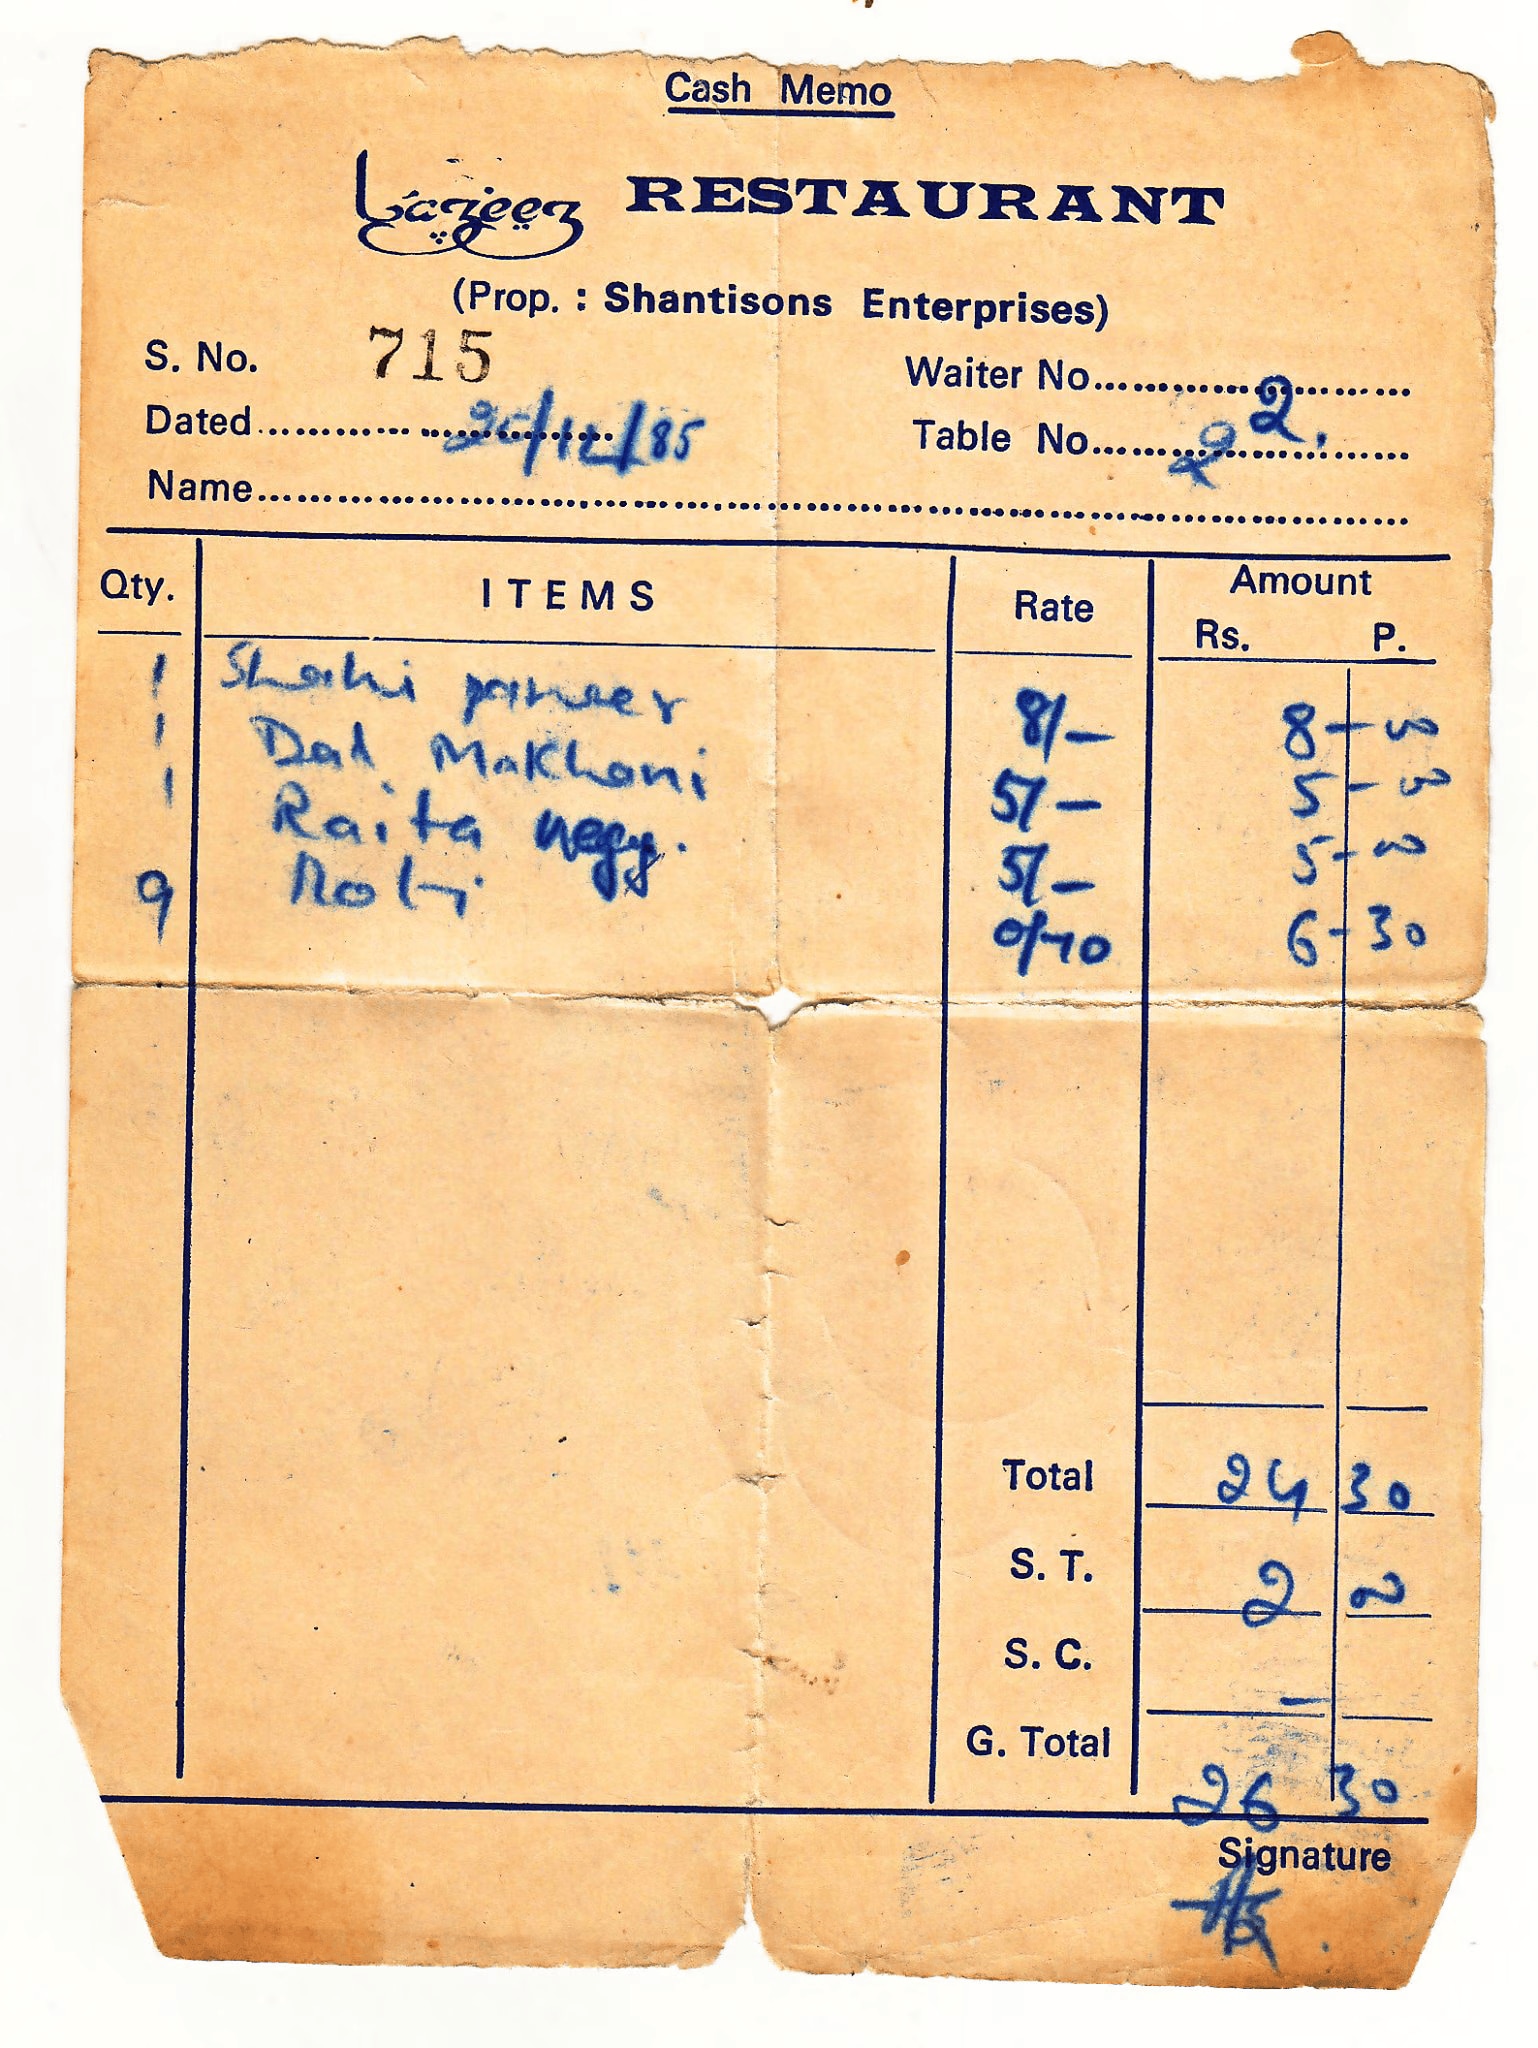 Cash Memo
Lazeez RESTAURANT
(Prop. : Shantisons Enterprises)
S. No. 715
Waiter No.................... 2.
Dated.................... /12/85
Table No....................
Name....................
Qty. ITEMS Rate Amount
Rs. P.
1 Shahi paneer 8/- 8-00
1 Dal Makhani 5/- 5-00
1 Raita vegy. 5/- 5-00
9 Roti 0/70 6-30
Total 24 30
S. T. 2 00
S. C. -
G. Total 26 30
Signature